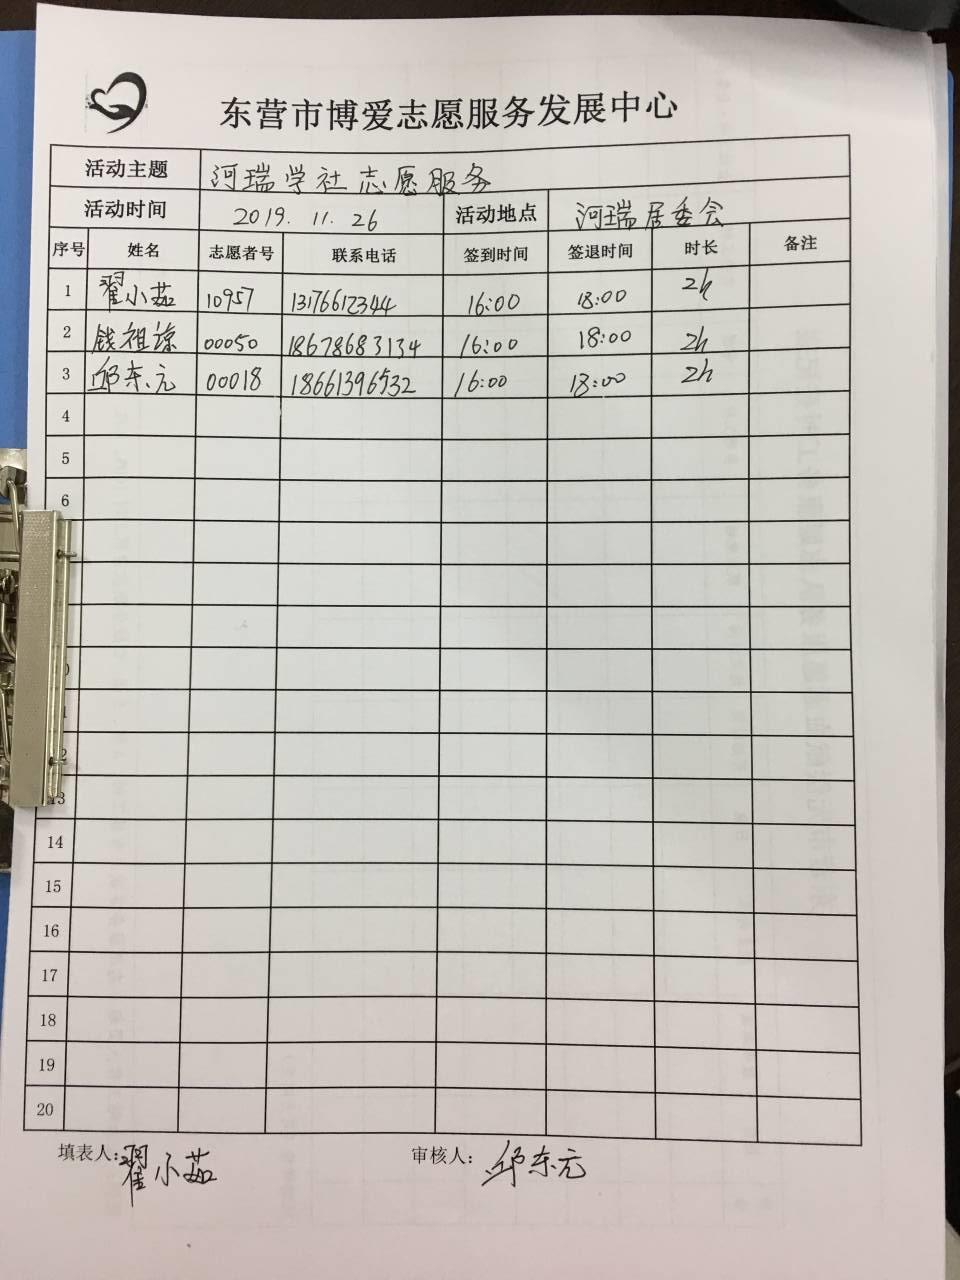 东营市博爱志愿服务发展中心
活动主题 河瑞学社志愿服务
活动时间 2019.11.26 活动地点 河瑞居委会
序号 姓名 志愿者号 联系电话 签到时间 签退时间 时长 备注
1 翟小茹 10957 13176612344 16:00 18:00 2h
2 钱祖谅 00050 18678683134 16:00 18:00 2h
3 邱东元 00018 18661396532 16:00 18:00 2h
4
5
6
13
14
15
16
17
18
19
20
填表人: 翟小茹 审核人: 邱东元